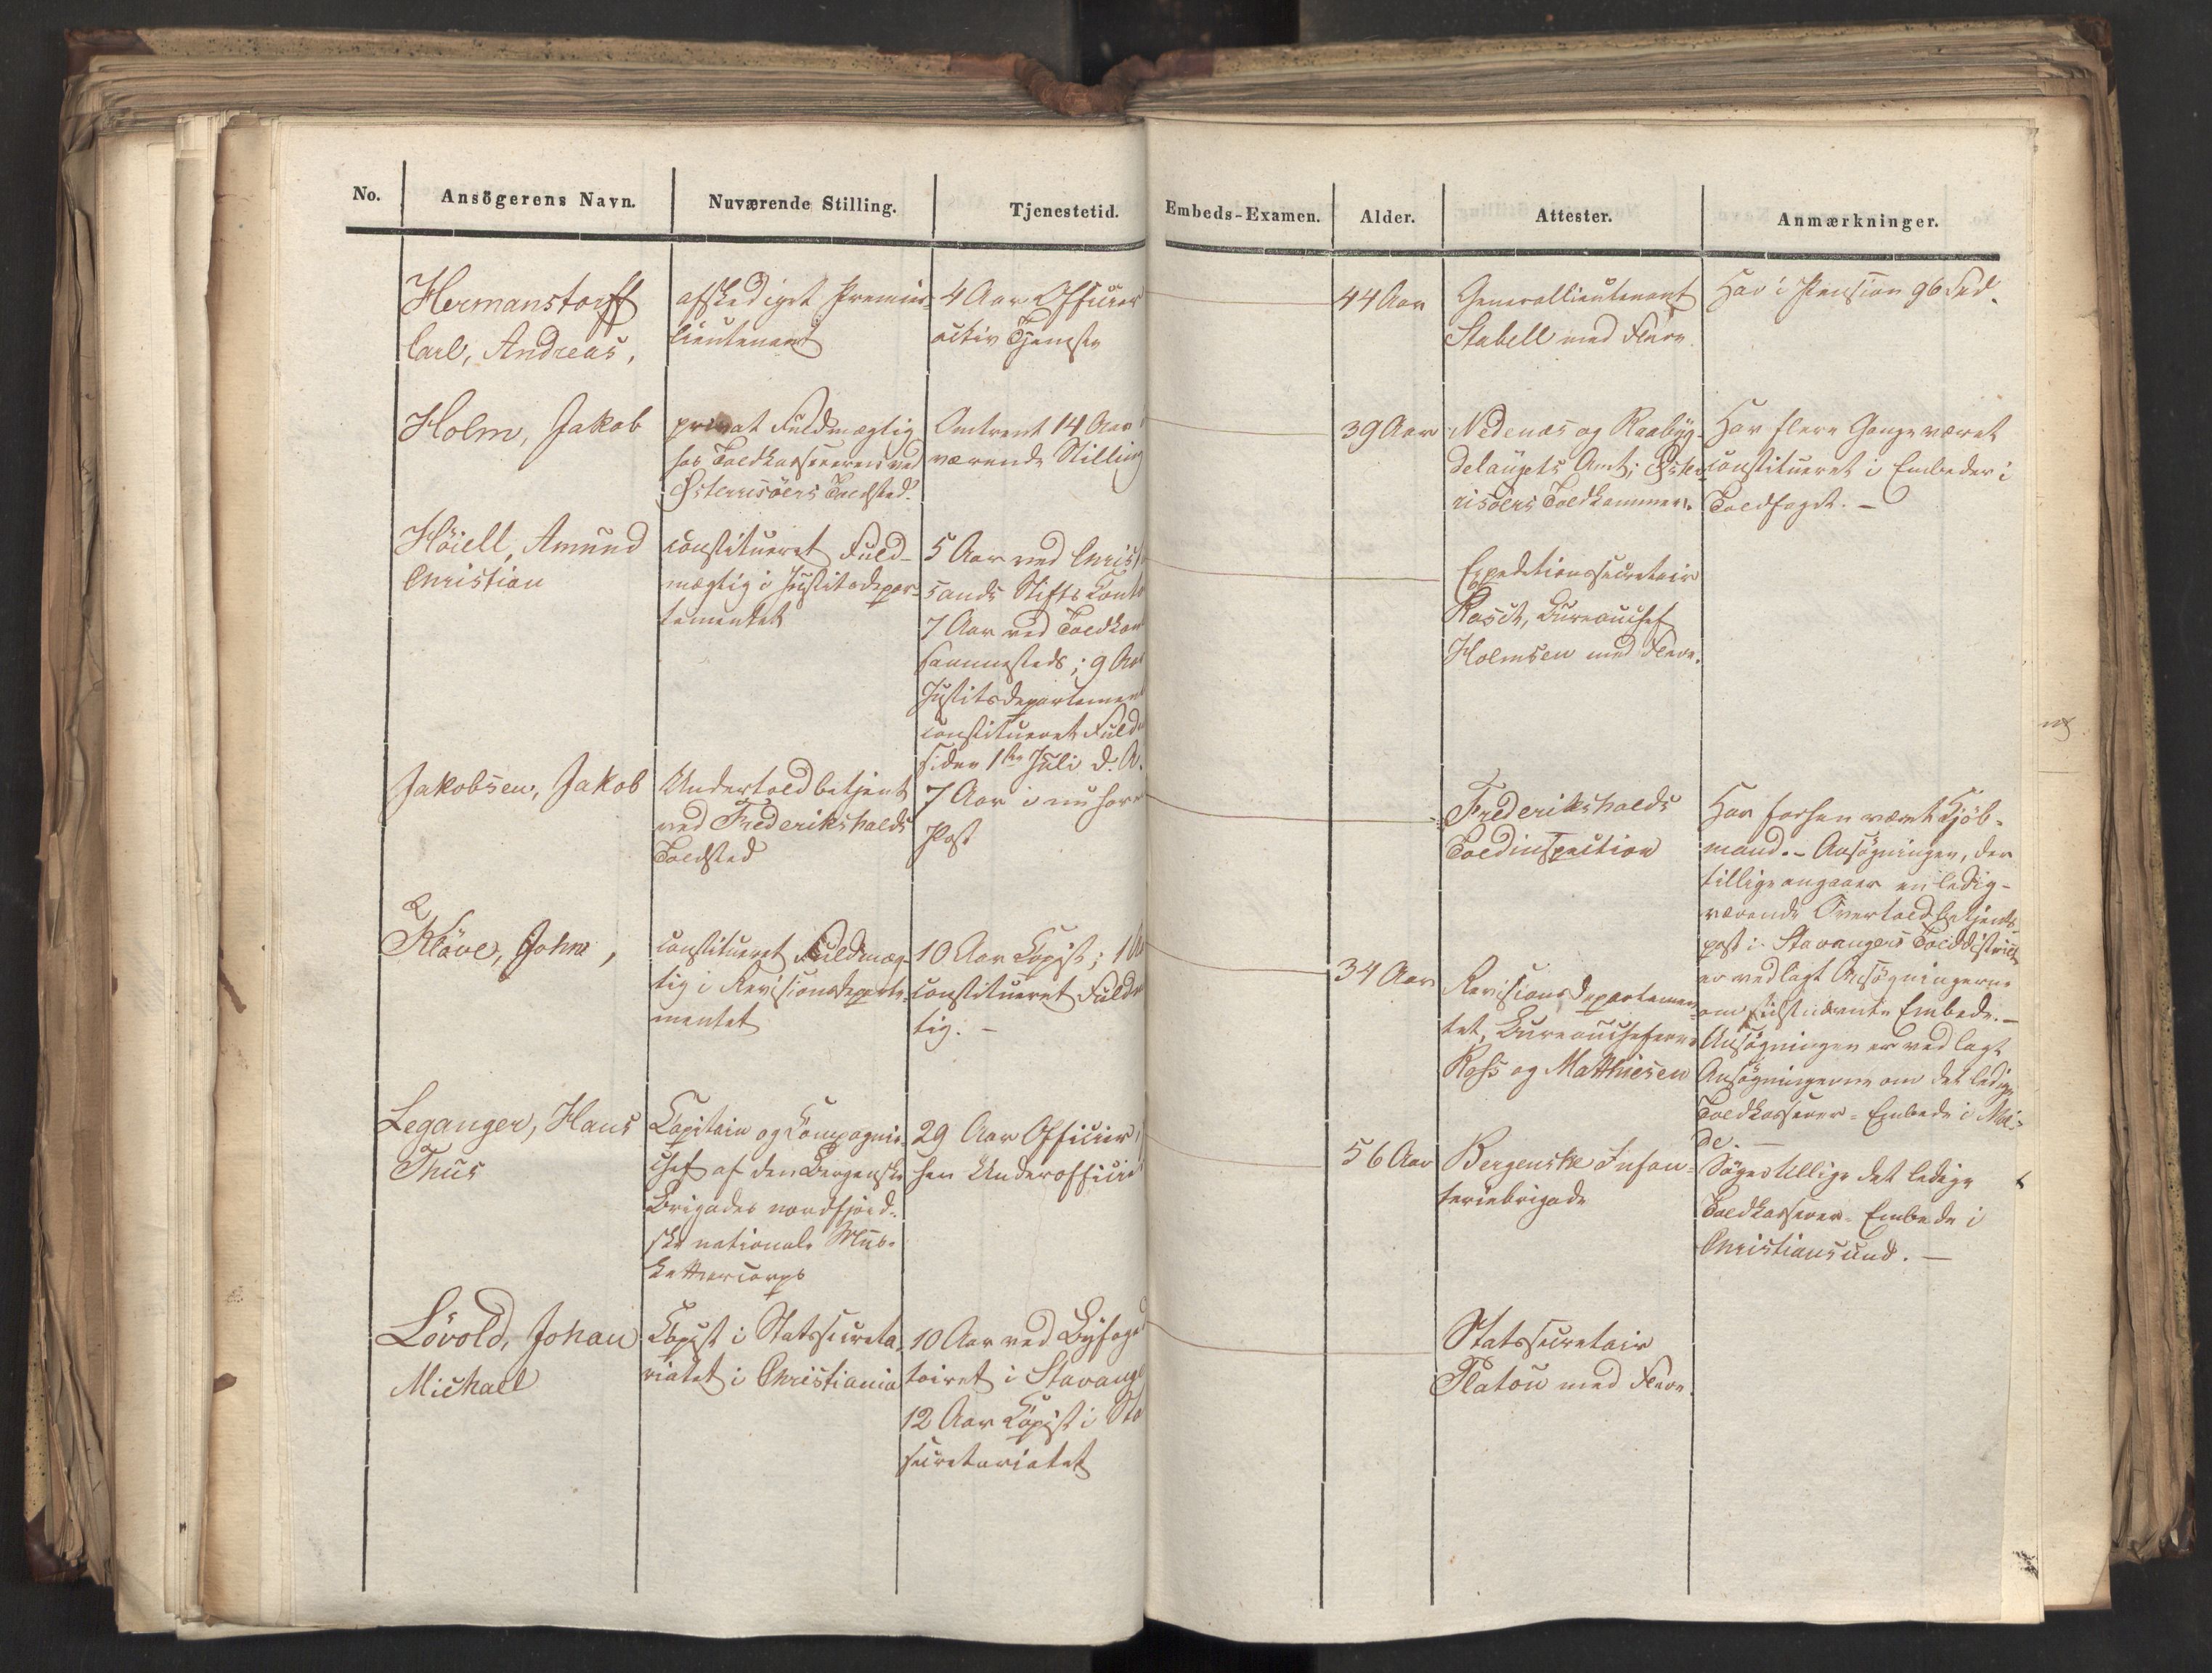 No.
Ansögerens Navn.
Nuværende Stilling.
Tjenestetid.
Embeds-Examen.
Alder.
Attester.
Anmærkninger.
Hermanstorff
Carl, Andreas,
afskediget Premier-
lieutenant
4 Aar Officier
activ Tjeneste
44 Aar
Generallieutenant
Stabell med Flere
Har i Pension 96 Spd.
Holm, Jakob
privat Fuldmægtig
hos Toldkassereren ved
Østerrisöers Toldsted.
Omtrent 14 Aar i
værende Stilling
39 Aar
Nedenæs og Raabyg-
delaugets Amt; Øster-
risöers Toldkammer.
Har flere Gange været
constitueret i Embeder i
Toldfaget. -
Höiell, Amund
Christian
constitueret Fuld-
mægtig i Justitsdepar-
tementet
5 Aar ved Christ
sands Stifts Conto
7 Aar ved Toldkon
sammesteds; 9 Aar
Justitsdepartement
constitueret Fuldm
siden 1ste Juli d. A.
Expeditionssecretair
Rasch, Bureauchef
Holmsen med Flere.
Jakobsen, Jakob
Undertoldbetjent
ved Frederikshalds
Toldsted
7 Aar i nu hav
Post
Frederikshalds
Toldinspection
Har forhen været Kjöb-
mand. - Ansögningen, der
tillige angaaer en ledig-
værende Overtoldbetjents-
post i Stavangers Tolddistrict
er vedlagt Ansögningerne
om sidstnævnte Embede. -
Klöve, John,
constitueret Fuldmæg-
tig i Revisionsdeparte-
mentet
10 Aar Copist; 1 A
constitueret Fuldm
tig. -
34 Aar
Revisionsdepartemen-
tet, Bureaucheferne
Ross og Matthiesen
Ansögningen er vedlagt
Ansögningerne om det ledige
Toldkasserer-Embede i Mol-
de. -
Leganger, Hans
Thiis
Capitain og Compagnie-
chef af den Bergenske
Brigades nordfjord-
ske nationale Mus-
ketteercorps
29 Aar Officier,
hen Underofficier
56 Aar
Bergenske Infan-
teriebrigade
Söger tillige det ledige
Toldkasserer-Embede i
Christiansund. -
Lövold, Johan
Michael
Copist i Statssecreta-
riatet i Christiania
10 Aar ved Byfoged
toiret i Stavange
12 Aar Copist i Sta
secretariatet
Statssecretair
Platou med Flere.